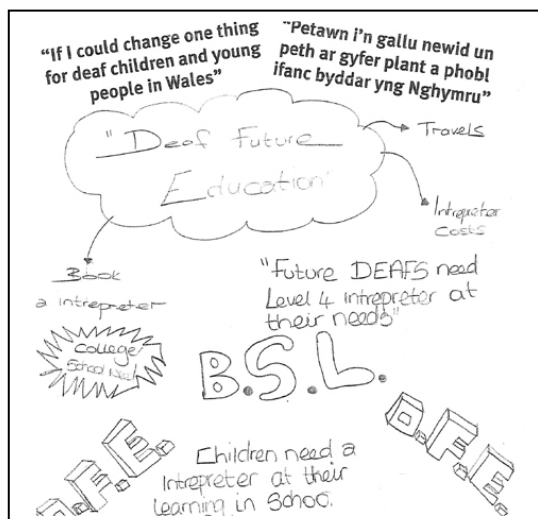 “If I could change one thing
for deaf children and young
people in Wales”
“Petawn i’n gallu newid un
peth ar gyfer plant a phobl
ifanc byddar yng Nghymru”
"Deaf Future
Education"
Travels
Intrepreter
Costs
Book
a intrepreter
College
School
"Future DEAFS need
Level 4 intrepreter at
their needs"
B.S.L.
D.F.E.
D.F.E.
Children need a
Intrepreter at their
learning in School.